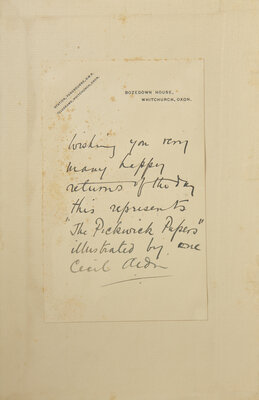 STATION, PANGBOURNE, G.W.R.
TELEGRAMS, WHITCHURCH, OXON.
BOZEDOWN HOUSE,
WHITCHURCH, OXON.
Wishing you very
many happy
returns of the day
this represents
"The Pickwick Papers"
illustrated by one
Cecil Aldin